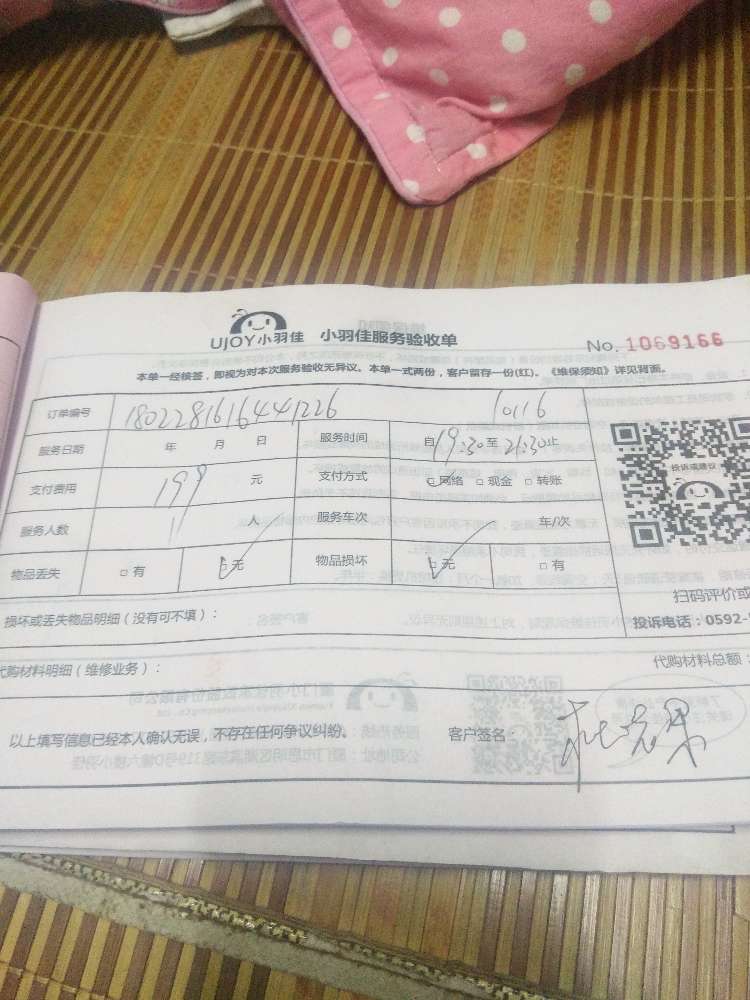 UJOY小羽佳 小羽佳服务验收单 No. 1069166
本单一经核签，即视为对本次服务验收无异议。本单一式两份，客户留存一份(红)。《维保须知》详见背面。
订单编号 1802281616441226 10116
服务日期 年 月 日 服务时间 自19:30至21:30止
支付费用 199 元 支付方式 □网络 □现金 □转账
投诉或建议
服务人数 1 人 服务车次 车/次
物品丢失 □有 □无 物品损坏 □无 □有
扫码评价或
损坏或丢失物品明细（没有可不填）： 投诉电话：0592-
代购材料明细（维修业务）： 代购材料总额：
以上填写信息已经本人确认无误，不存在任何争议纠纷。 客户签名：